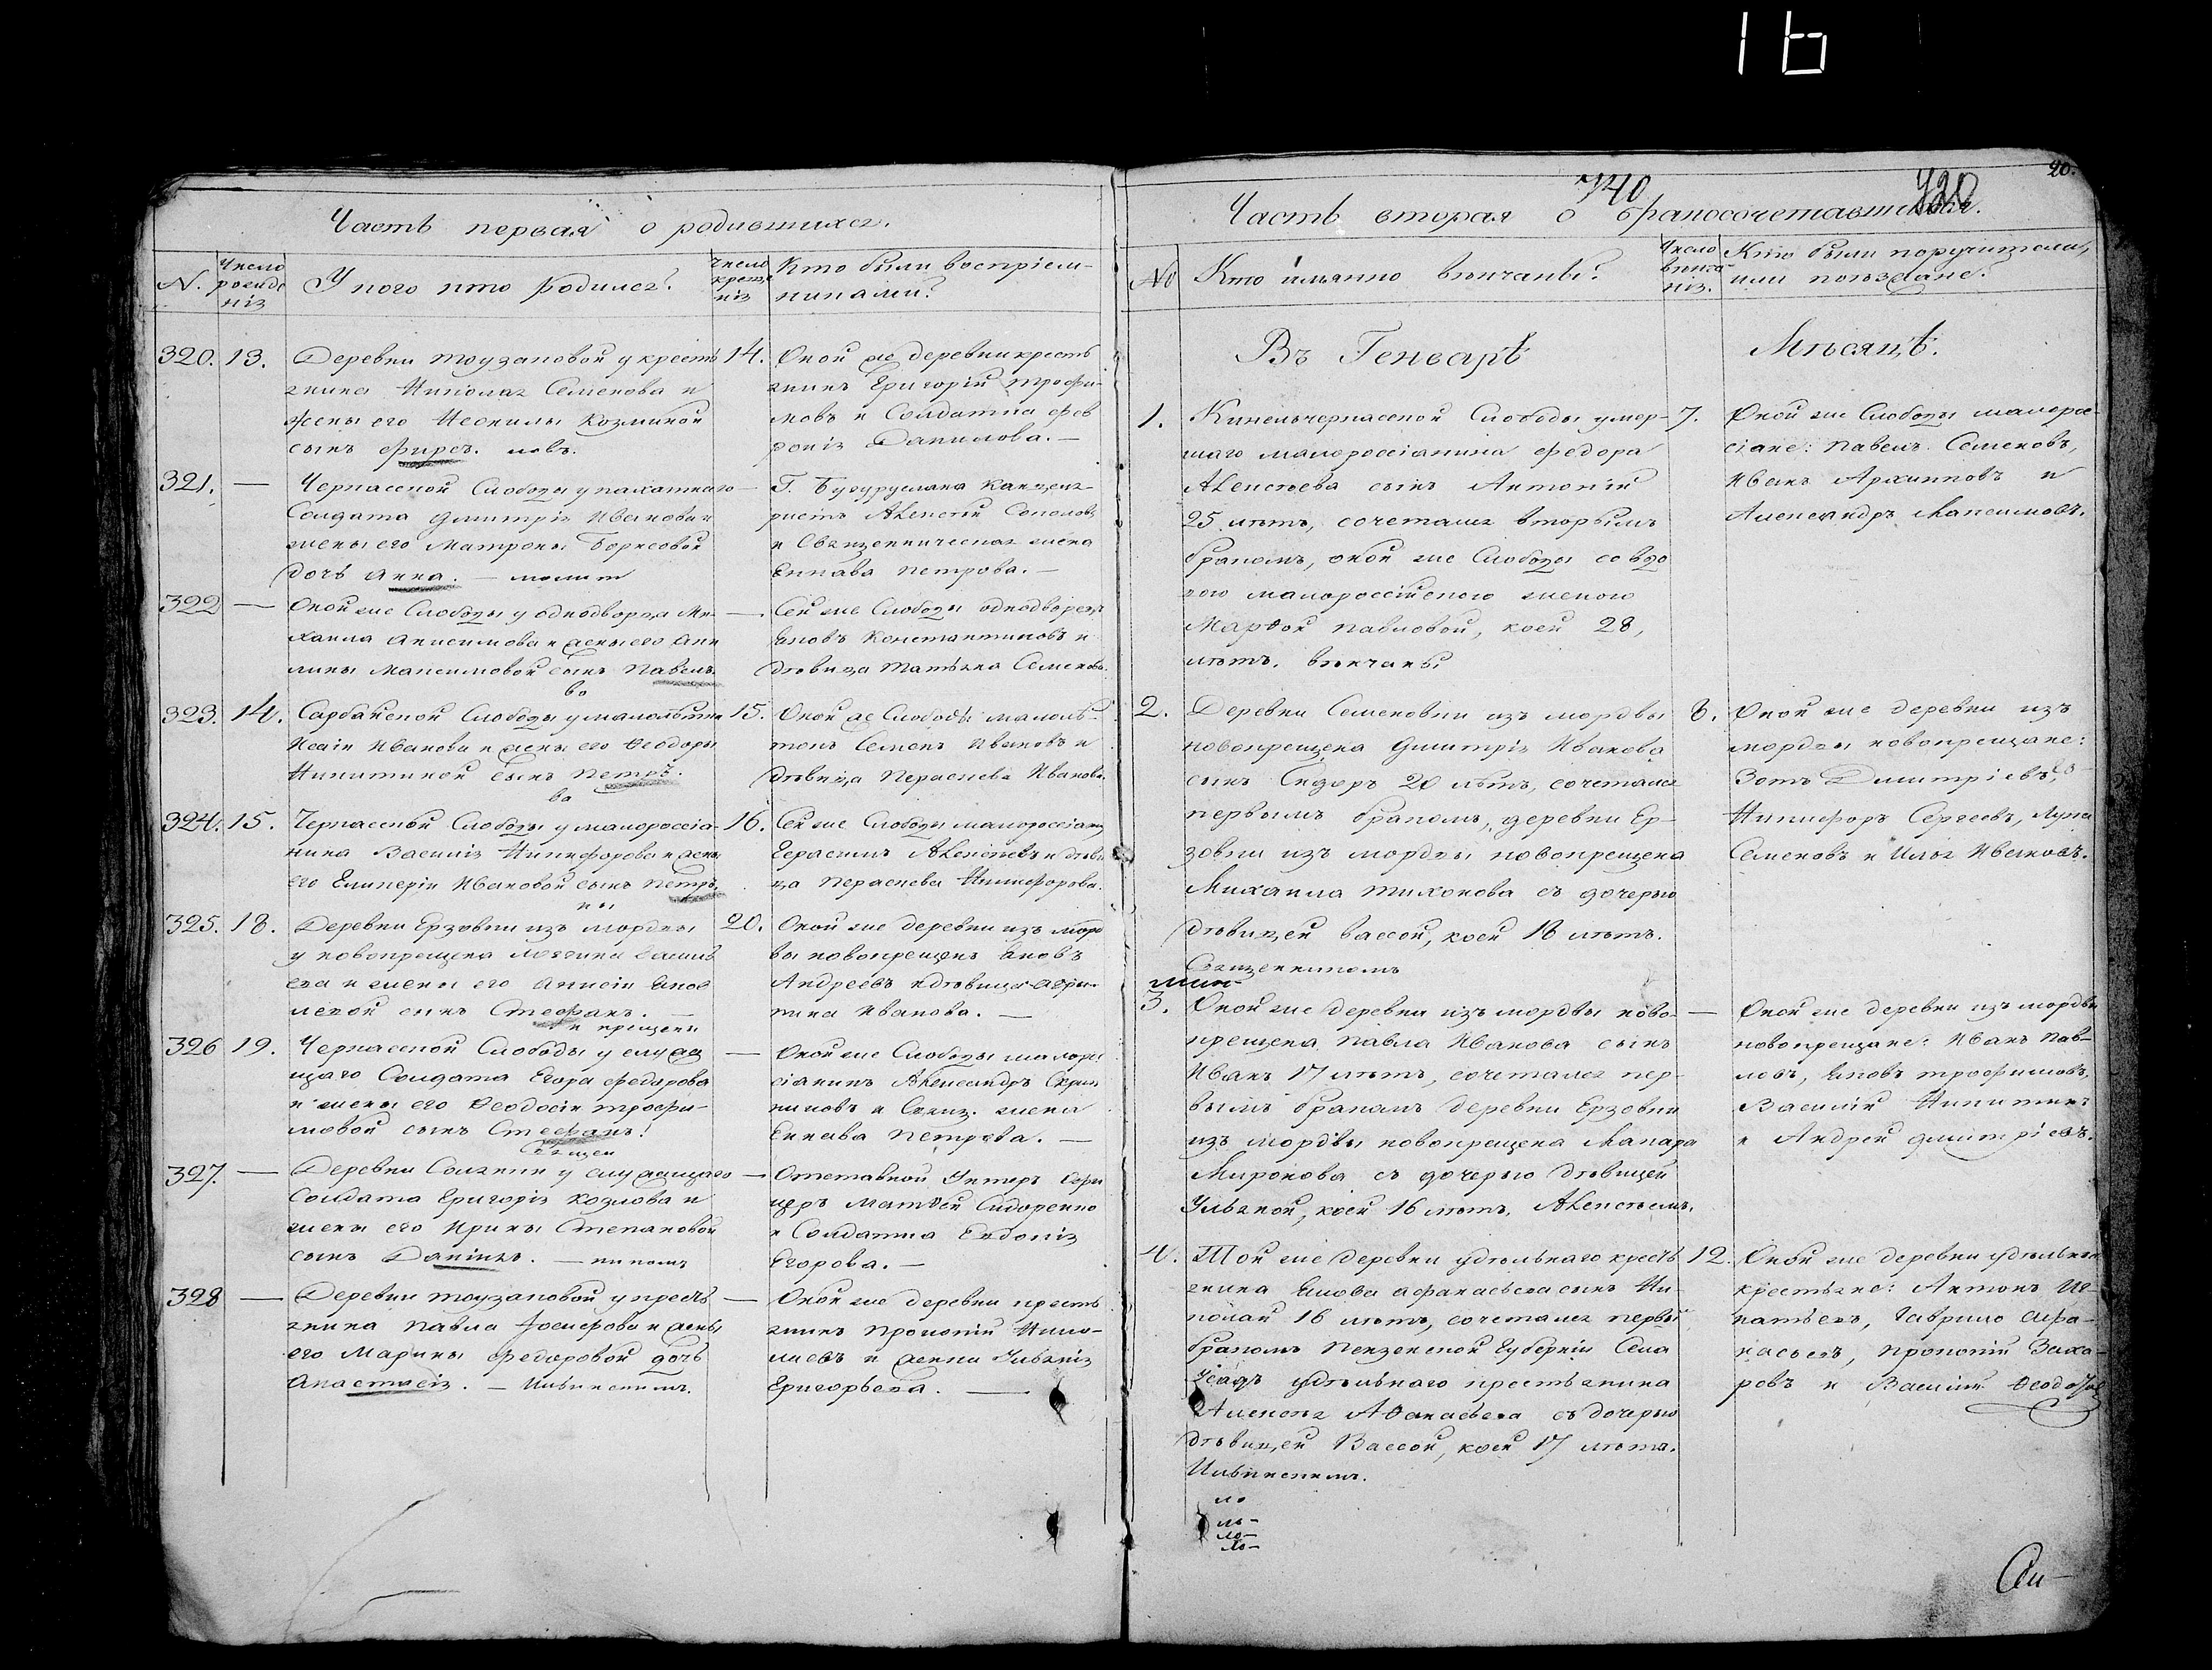 16
740
420
20.
Часть первая о родившихся.
N.
Число рожденія
У кого кто родился?
Число крещенія
Кто были воспріем-
никами?
320. 13. Деревни Тоузаковой у кресть
янина Николая Семенова и
жены его Неонилы Козминой
сынъ Фирсъ. ловъ.
14. Оной же деревни кресть
янинъ Григорій Трофи-
мовъ и Солдатка Фев
ронія Данилова. —
321. — Черкасской Слободы у пахатнаго
Солдата Дмитрія Иванова и
жены его Матроны Борисовой
дочь Анна. —
— Г. Бугуруслана Канцеля-
ристъ Алексѣй Соколовъ
и Священническая жена
Екнава Петрова. —
322 — Оной же Слободы у однодворца Ми-
хаила Анисимова и жены его Аки
лины Максимовой сынъ Павелъ.
— Сей же Слободы однодворецъ
Яковъ Константиновъ и
дѣвица Татьяна Семенова.
во
323. 14. Сарбайской Слободы у малолѣтка
Исаіи Иванова и жены его Ѳеодоры
Никитиной сынъ Петръ.
15. Оной же Слободы малолѣ-
токъ Семенъ Ивановъ и
дѣвица Параскева Иванова.
во
324. 15. Черкасской Слободы у малороссія-
нина Василія Никифорова и жены
его Гликеріи Ивановой сынъ Петръ.
16. Сей же Слободы малороссіянинъ
Герасимъ Алексѣевъ и дѣви
ца Параскева Никифорова.
ны
325. 18. Деревни Ерзовки изъ мордвы
у новокрещена Логгина Василь
ева и жены его Анисіи Яков
левой сынъ Стефанъ. —
20. Оной же деревни изъ морд
вы новокрещенъ Яковъ
Андреевъ и дѣвица Агри-
пина Иванова. —
и крещены
326 19. Черкасской Слободы у служа
щаго Солдата Егора Федорова
и жены его Ѳеодосіи Трофи-
мовой сынъ Стефанъ!
— Оной же Слободы малорос
сіянинъ Александръ
и Свящ. жена
Екнава Петрова. —
Священ
327. — Деревни у служащаго
Солдата Григорія Козлова и
жены его Ирины Степановой
сынъ Даніилъ. — никомъ
— Отставной Унтеръ Офи
церъ Матвѣй Сидоренко
и Солдатка Евдокія
Егорова. —
328 — Деревни Тоузаковой у кресть
янина Павла Іосифова и жены
его Марины Федоровой дочь
Анастасія. — Ильинскимъ.
— Оной же деревни кресть
янинъ Прокопій Нико-
лаевъ и женка Ульянія
Григорьева. —
Часть вторая о бракосочетавшихся.
No
Кто имянно вѣнчаны?
Число вѣнчанія.
Кто были поручители,
или поѣзжане?
Въ Генварѣ
Мѣсяцѣ.
1. Кинельчеркасской Слободы умер-
шаго малороссіянина Федора
Алексѣева сынъ Антоній
25 лѣтъ, сочетался вторымъ
бракомъ, оной же Слободы со вдо
вою малороссійскою женою
Марѳой Павловой, коей 28,
лѣтъ. вѣнчаны
7. Оной же Слободы малорос-
сіяне: Павелъ Семеновъ,
Иванъ Архиповъ и
Александръ Максимовъ.
2. Деревни Семеновки изъ мордвы
новокрещена Дмитрія Иванова
сынъ Сидоръ 20 лѣтъ, сочетался
первымъ бракомъ, деревни Ер-
зовки изъ мордвы новокрещена
Михаила Тихонова съ дочерью
дѣвицей Вассой, коей 18 лѣтъ.
Священникомъ
8. Оной же деревни изъ
мордвы новокрещане:
Зотъ Димитріевъ,
Никифоръ Сергеевъ, Лука
Семеновъ и Илья Ивановъ.
3. Оной же деревни изъ мордвы ново-
крещена Павла Иванова сынъ
Иванъ 17 лѣтъ, сочетался пер-
вымъ бракомъ деревни Ерзовки
изъ мордвы новокрещена Макара
Миронова съ дочерью дѣвицей
Ульяной, коей 16 лѣтъ. Алексѣемъ.
— Оной же деревни изъ мордвы
новокрещане: Иванъ Пав-
ловъ, Яковъ Трофимовъ,
Василій Никитинъ
и Андрей Дмитріевъ.
4. Той же деревни удѣльнаго кресть
янина Якова Афанасьева сынъ Ни-
колай 18 лѣтъ, сочетался первы
бракомъ Пензенской Губерніи Села
удѣльнаго крестьянина
Алексѣя Аѳанасьева съ дочерью
дѣвицей Вассой, коей 17 лѣтъ.
Ильинскимъ.
12. Оной же деревни удѣльные
крестьяне: Антонъ Иг-
натьевъ, Гаврило Афа-
насьевъ, Прокопій Заха-
ровъ и Василій